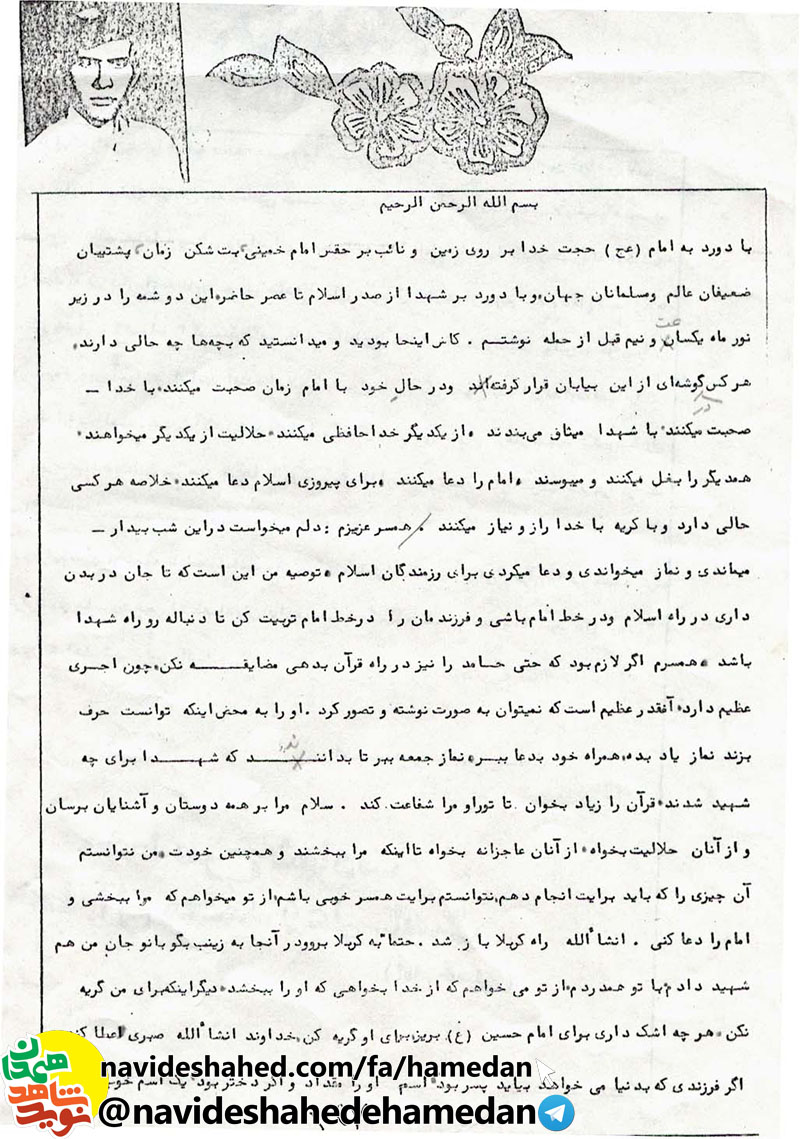 بسم الله الرحمن الرحیم
با دورد به امام (عج) حجت خدا بر روی زمین و نائب بر حقش امام خمینی، بت شکن زمان، پشتیبان
ضعیفان عالم ومسلمانان جهان، و با دورد بر شهدا از صدر اسلام تا عصر حاضر، این دو شمه را در زیر
نور ماه یکساعت و نیم قبل از حمله نوشتم . کاش اینجا بودید و میدانستید که بچه‌ها چه حالی دارند،
هر کس گوشه‌ای از این بیابان قرار گرفته‌اند ودر حال خود با امام زمان صحبت میکنند، با خدا –
صحبت میکنند، با شهدا میثاق می‌بندند ، از یکدیگر خداحافظی میکنند، حلالیت از یکدیگر میخواهند،
همدیگر را بغل میکنند و میبوسند ، امام را دعا میکنند ، برای پیروزی اسلام دعا میکنند، خلاصه هر کسی
حالی دارد و با گریه با خدا راز و نیاز میکنند . همسر عزیزم : دلم میخواست در این شب بیدار –
میماندی و نماز میخواندی و دعا میکردی برای رزمندگان اسلام ، توصیه من این است که تا جان در بدن
داری در راه اسلام ودر خط امام باشی و فرزندمان را درخط امام تربیت کن تا دنباله رو راه شهدا
باشد ، همسرم اگر لازم بود که حتی حامد را نیز در راه قرآن بدهی مضایقـــه نکن، چون اجری
عظیم دارد، آنقدر عظیم است که نمیتوان به صورت نوشته و تصور کرد . او را به محض اینکه توانست حرف
بزند نماز یاد بده، همراه خود بدعا ببر، نماز جمعه ببر تا بدانند که شهدا برای چه
شهید شدند، قرآن را زیاد بخوان تا تورا و مرا شفاعت کند . سلام مرا بر همه دوستان و آشنایان برسان
و از آنان حلالیت بخواه، از آنان عاجزانه بخواه تا اینکه مرا ببخشند و همچنین خودت، من نتوانستم
آن چیزی را که باید برایت انجام دهم، نتوانستم برایت همسر خوبی باشم، از تو میخواهم که مرا ببخشی و
امام را دعا کنی . انشاءالله راه کربلا باز شد . حتما به کربلا برو و در آنجا به زینب بگو بانو جان من هم
شهید دادم، با تو همدردم، از تو می خواهم که از خدا بخواهی که او را ببخشد، دیگر اینکه برای من گریه
نکن، هر چه اشک داری برای امام حسین (ع) بریز، برای او گریه کن، خداوند انشاءالله صبری اعطا کند
اگر فرزندی که بدنیا می خواهد بیاید پسر بود اسم او را مقداد و اگر دختر بود یک اسم
navideshahed.com/fa/hamedan
@navideshahedehamedan
نوید شاهد همدان